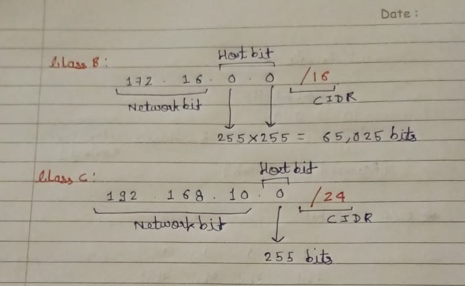 Date :
Class B :
Host bit
172 . 16 . 0 . 0 /16
Network bit
CIDR
255 x 255 = 65,025 bits
Class C :
Host bit
192 . 168 . 10 . 0 /24
Network bit
CIDR
255 bits